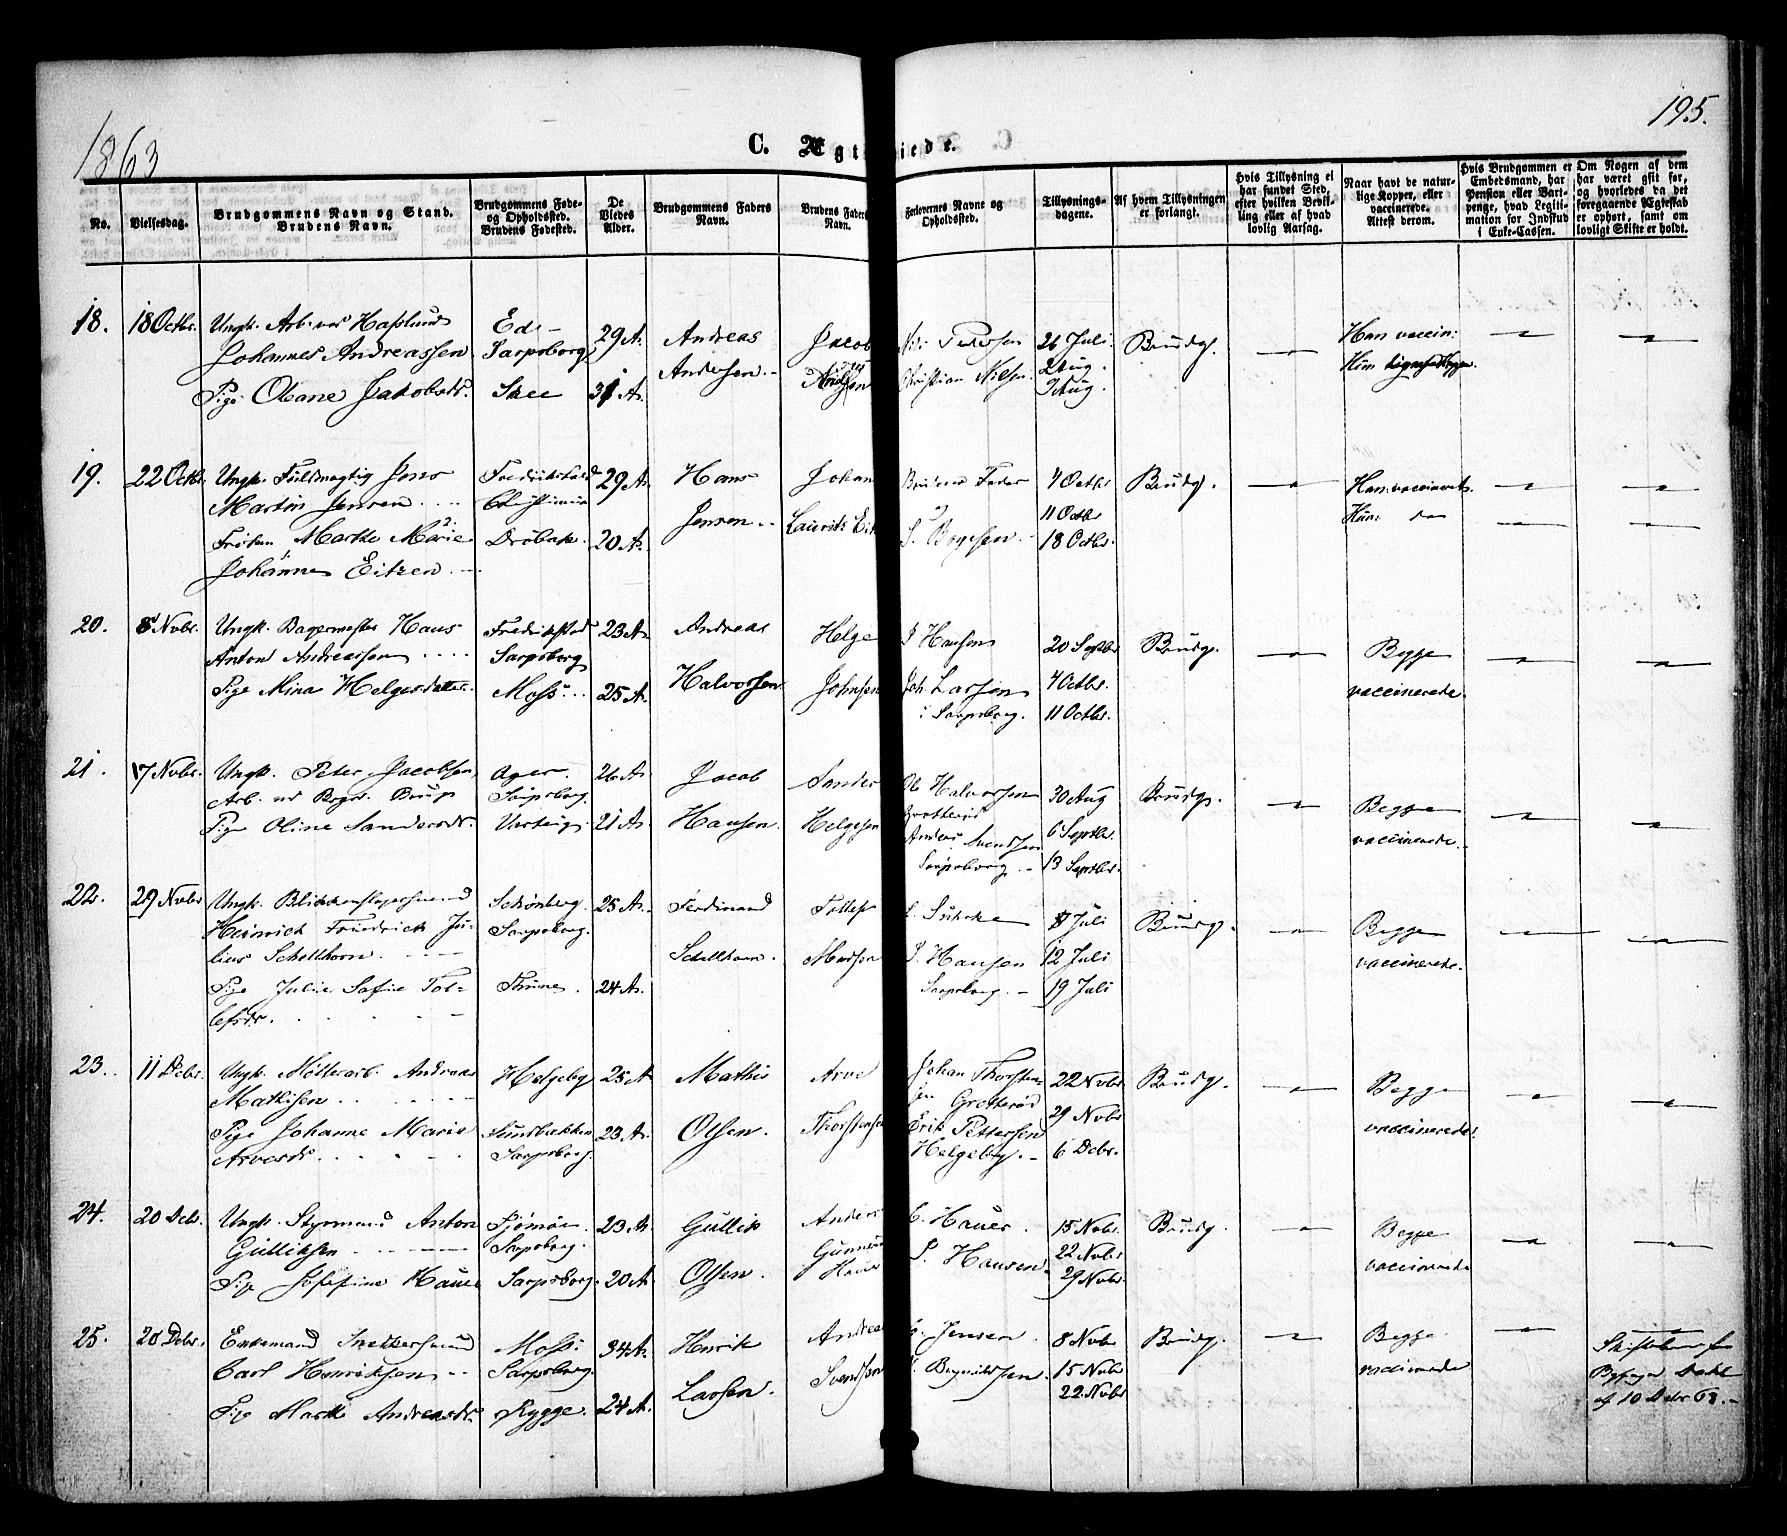 1863
195.
C. Ægteviede.
No.
Vielsesdag.
Brudgommens Navn og Stand.
Brudens Navn.
Brudgommens Føde-
og Opholdssted.
Brudens Fødested.
De
Viedes
Alder.
Brudgommens Faders
Navn.
Brudens Faders
Navn.
Forlovernes Navne og
Opholdssted.
Tillysnings-
dagene.
Af hvem Tillysningen
er forlangt.
Hvis Tillysning ei
har fundet Sted,
efter hvilken Bevil-
ling eller af hvad
lovlig Aarsag.
Naar havt de natur-
lige Kopper, eller
vaccinerede.
Attest derom.
Hvis Brudgommen er
Embedsmand, har
Pension eller Var-
penge, hvad Legiti-
mation for Indskud
i Enke-Cassen.
Om Nogen af dem
har været gift før,
og hvorledes da det
foregaaende Ægteskab
er ophørt, samt om
lovligt Skifte er holdt.
18. 18 Octbr.
Ungk. Arb. ved Hafslund
Johannes Andreassen
Pige Oleane Jakobsdr.
Ed-
Sarpsborg
Skee
29 A.
31 A.
Andreas
Andersen.
Jacob
Christian Nilsen.
26 Juli.
2 Aug.
9 Aug.
Brudg.
Han vaccin:
Hun
19. 22 Octbr.
Ungk. Fuldmægtig Jens
Martin Jensen
Frøken Marthe Marie
Johanne Eitzen
Fredrikshald
Christiania
Drøbak.
29 A.
20 A.
Hans
Jensen
Johan
Lauritz Eit
Brudens Fader
S. Boysen
4 Octbr
11 Octbr
18 Octbr.
Brudg.
Han vaccineret.
Hun do
20. 8 Nvbr.
Ungk. Bagermester Hans
Anton Andreassen
Pige Mina Helgesdatter.
Fredrikstad
Sarpsborg
Moss.
23 A.
25 A.
Andreas
Halvorsen.
Helge
Johnsen
P. Hansen
Joh. Larsen
i Sarpsborg.
20 Septbr
4 Octbr.
11 Octbr.
Brudg.
Begge
vaccinerede.
21. 17 Nvbr.
Ungk. Peter Jacobsen
Arb. ved Borg. Brug
Pige Oline Sandersdr.
Ager.
Sarpsborg.
Varteig.
26 A.
21 A.
Jacob
Hansen.
Sander
Helgesen
Ol Halvorsen
Grotterød
Anders Svendsen
Sarpsborg.
30 Aug
6 Septbr.
13 Septbr.
Brudg.
Begge
vaccinerede.
22. 29 Nvbr
Ungk. Blikkenslagersvend
Heinrich Friedrich Ju-
lius Schellhorn.
Pige Julie Sofie Tol-
lefsdr.
Schönberg.
Sarpsborg.
Thune.
25 A.
24 A.
Ferdinand
Schellhorn.
Tollef
Madsen
P. Hansen
Sarpsborg.
8 Juli
12 Juli
19 Juli
Brudg.
Begge
vaccinerede.
23. 11 Dcbr.
Ungk. Møllerarb. Andreas
Mathisen
Pige Johanne Marie
Arvesdr.
Helgeby
Sundsbakken
Sarpsborg.
25 A.
23 A.
Mathis
Olsen.
Arve
Thorstensen
Johan Thorsten-
sen Grotterød
Erik Pettersen
Helgeby.
22 Nvbr
29 Nvbr
6 Dcbr.
Brudg.
Begge
vaccinerede.
24. 20 Dcbr.
Ungk. Styrmand Anton
Gulliksen
Pige Josefine Hauer
Tjømøe.
Sarpsborg.
Sarpsborg.
23 A.
20 A.
Gullik
Olsen.
Anders
Gunnerius
Hauer
C. Hauer.
P. Hansen.
15 Nvbr.
22 Nvbr
29 Nvbr.
Brudg.
Begge
vaccinerede
25. 20 Dcbr.
Enkemand Snekkersvend
Carl Henriksen
Pige Marthe Andreasdr.
Moss.
Sarpsborg.
Rygge.
34 A.
24 A.
Henrik
Larsen.
Andreas
Svendsen
Jensen.
8 Nvbr
15 Nvbr
22 Nvbr
Brudg.
Begge
vaccinerede
Skiftebrev fra
Byfoged Dahl
af 10 Dcbr 63.